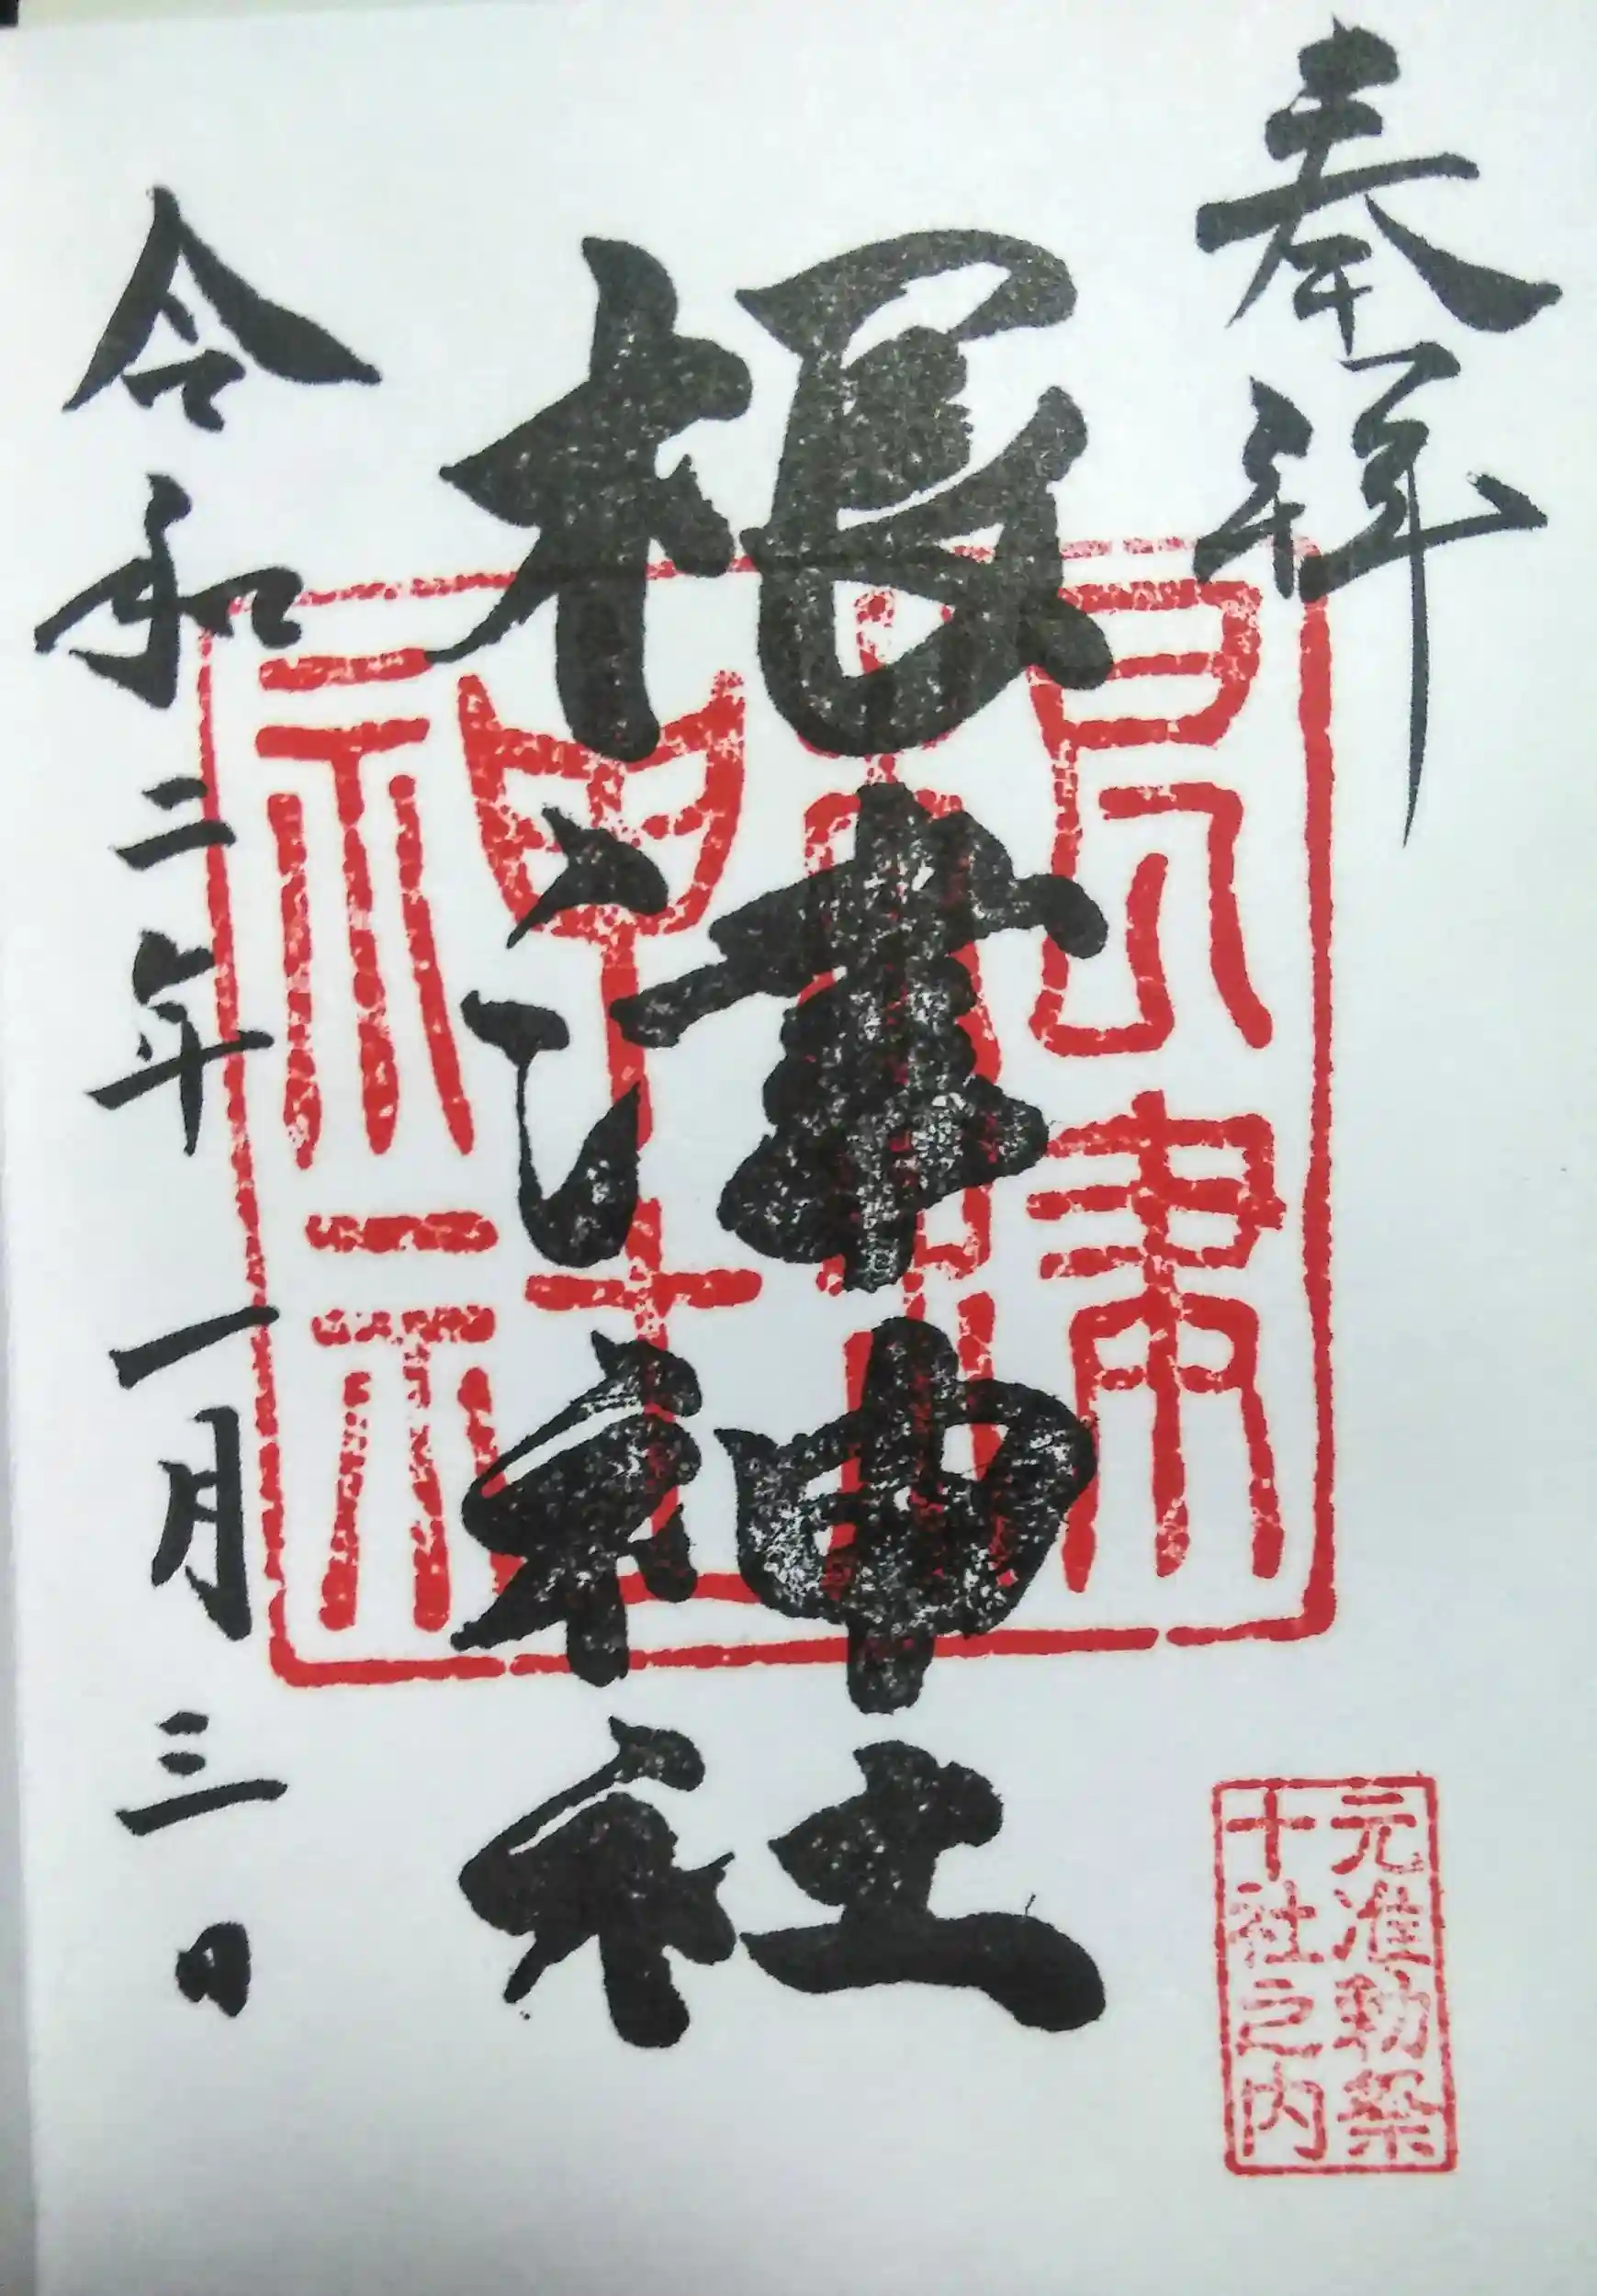 奉拝
根津神社
令和二年一月三日
根津神社
元准勅祭
十社之内